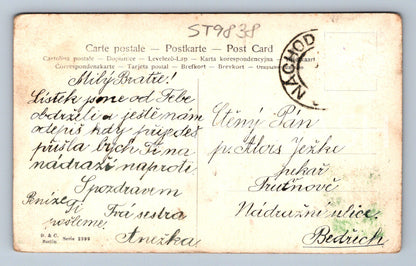 ST9838
Carte postale – Postkarte – Post Card
Cartolina postale – Dopisnice – Levelező-Lap – Karta korespondencyjna
Correspondenzkarte – Tarjeta postal – Brefkort – Brevkort
NÁCHOD
Milý Bratře!
Lístek jsme od Tebe
obdrželi a ještě nám
odepiš kdy přijedeš
přišla bych Ti na
nádraží naproti
S pozdravem
Peníze Ti Tvá sestra
pošleme. Anežka
Ctěný Pán
p. Alois Ježke
pekař
Trutnově
Nádražní ulice
Bedřich
B. & C.
Berlin. Serie 2299